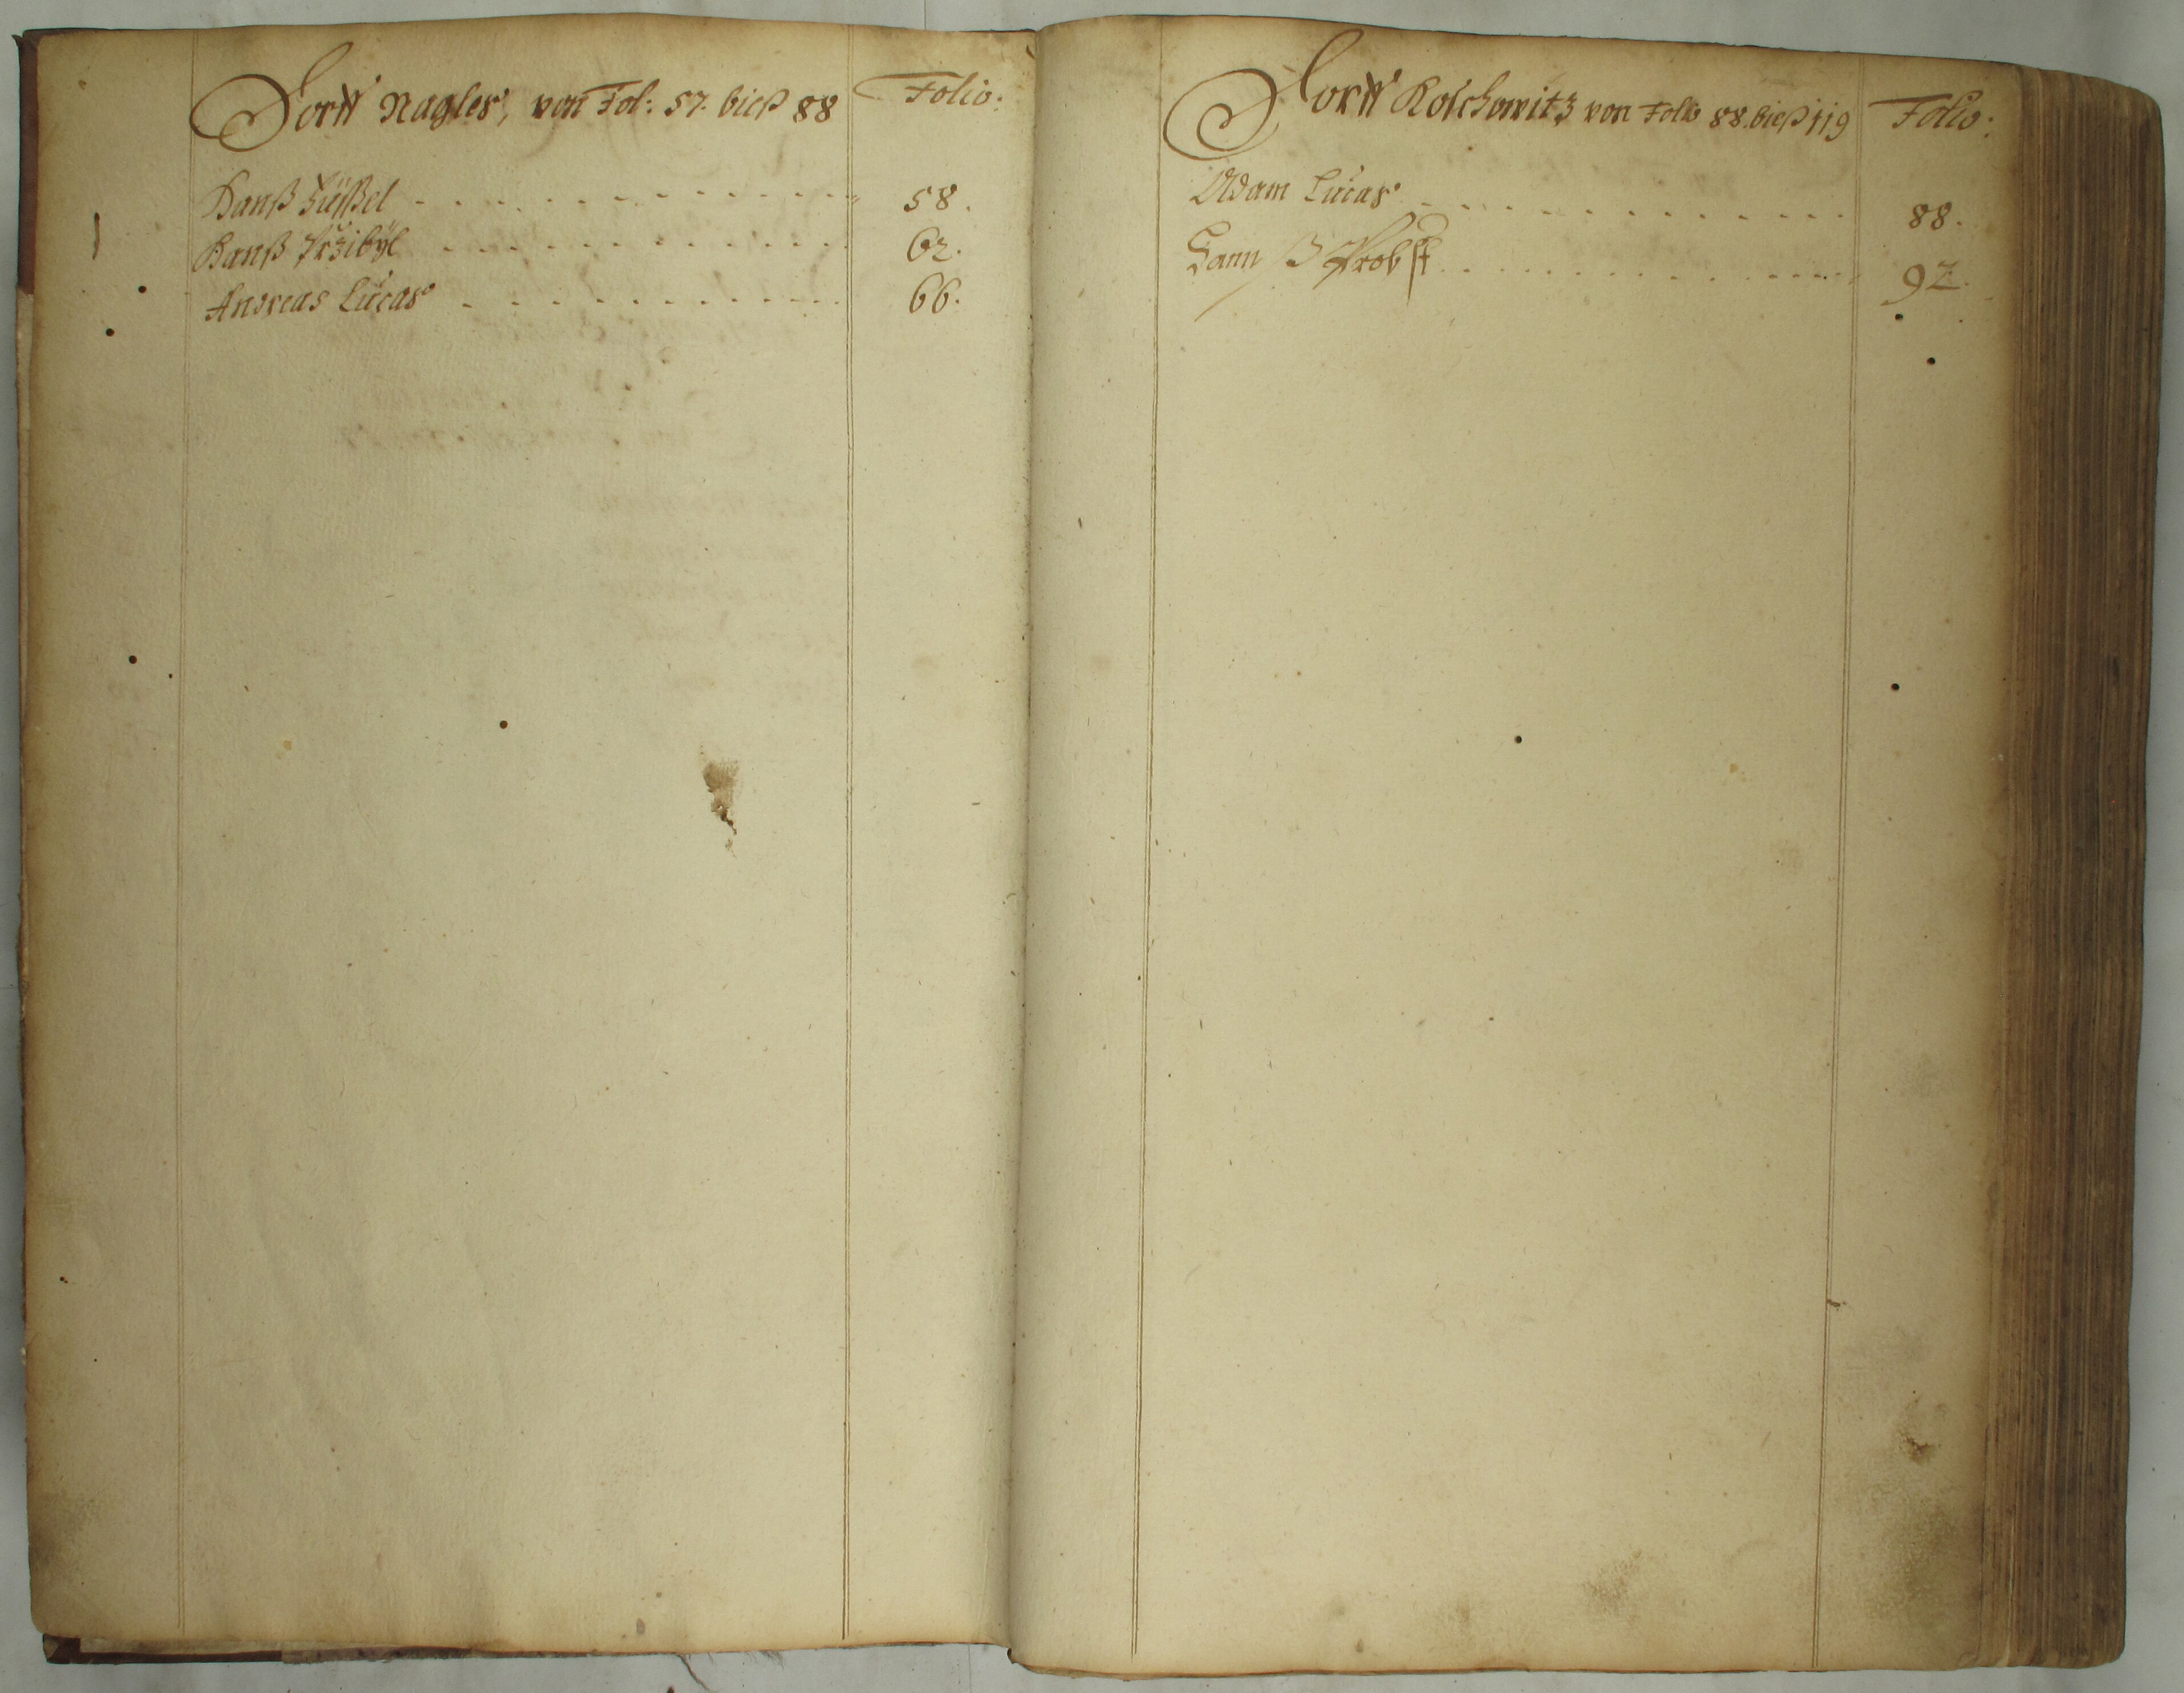 Dorff Nagles, von Fol: 57. bieß 88 Folio:
Hanß Züßel 58.
Hanß Pržibÿl 62.
Andreas Lucas 66.
Dorff Koschowitz von Folio 88. bieß 119 Folio:
Adam Lucas 88.
Hannß Probst 92.